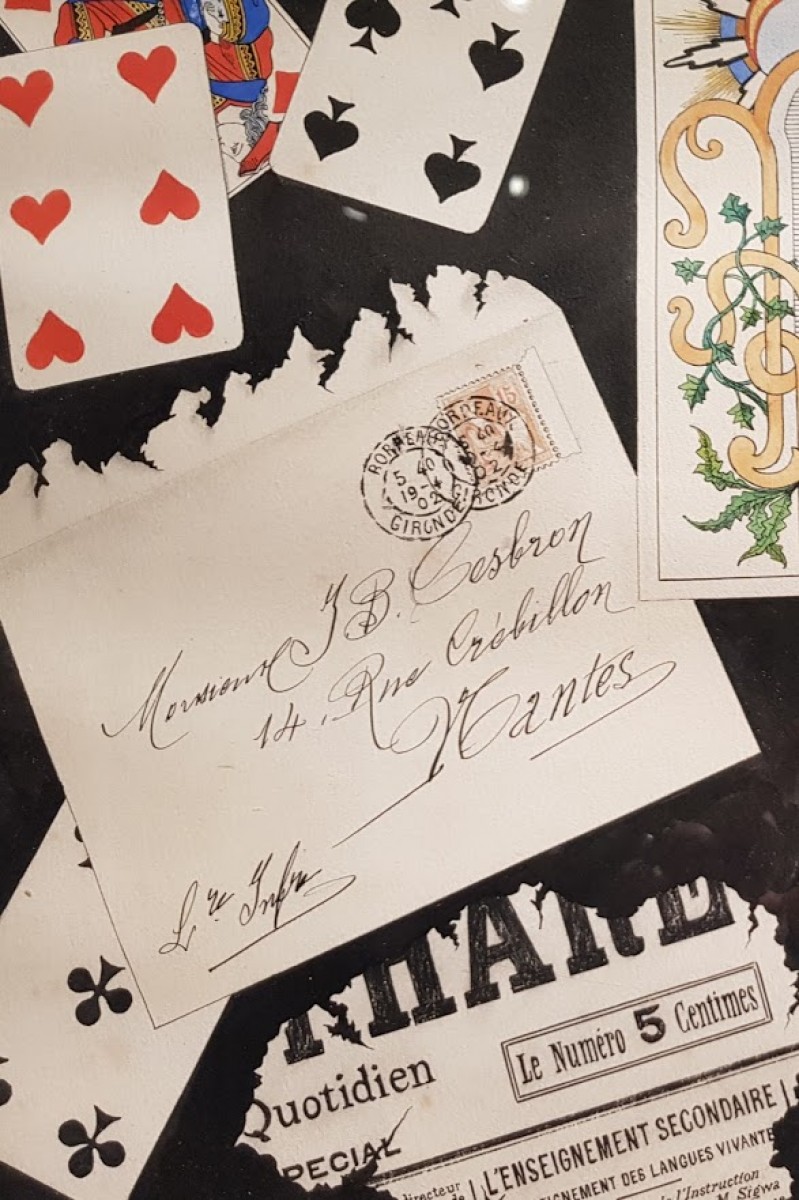 15
BORDEAUX
5 40
19-4
02
GIRONDE
BORDEAUX
40
02
GIRONDE
Monsieur J B. Cesbron
14, Rue Crébillon
Nantes
Lre Infre
PHARE
Quotidien
Le Numéro 5 Centimes
SPECIAL
directeur
L'ENSEIGNEMENT SECONDAIRE
IGNEMENT DES LANGUES VIVANTE
l'Instruction
Sigwa